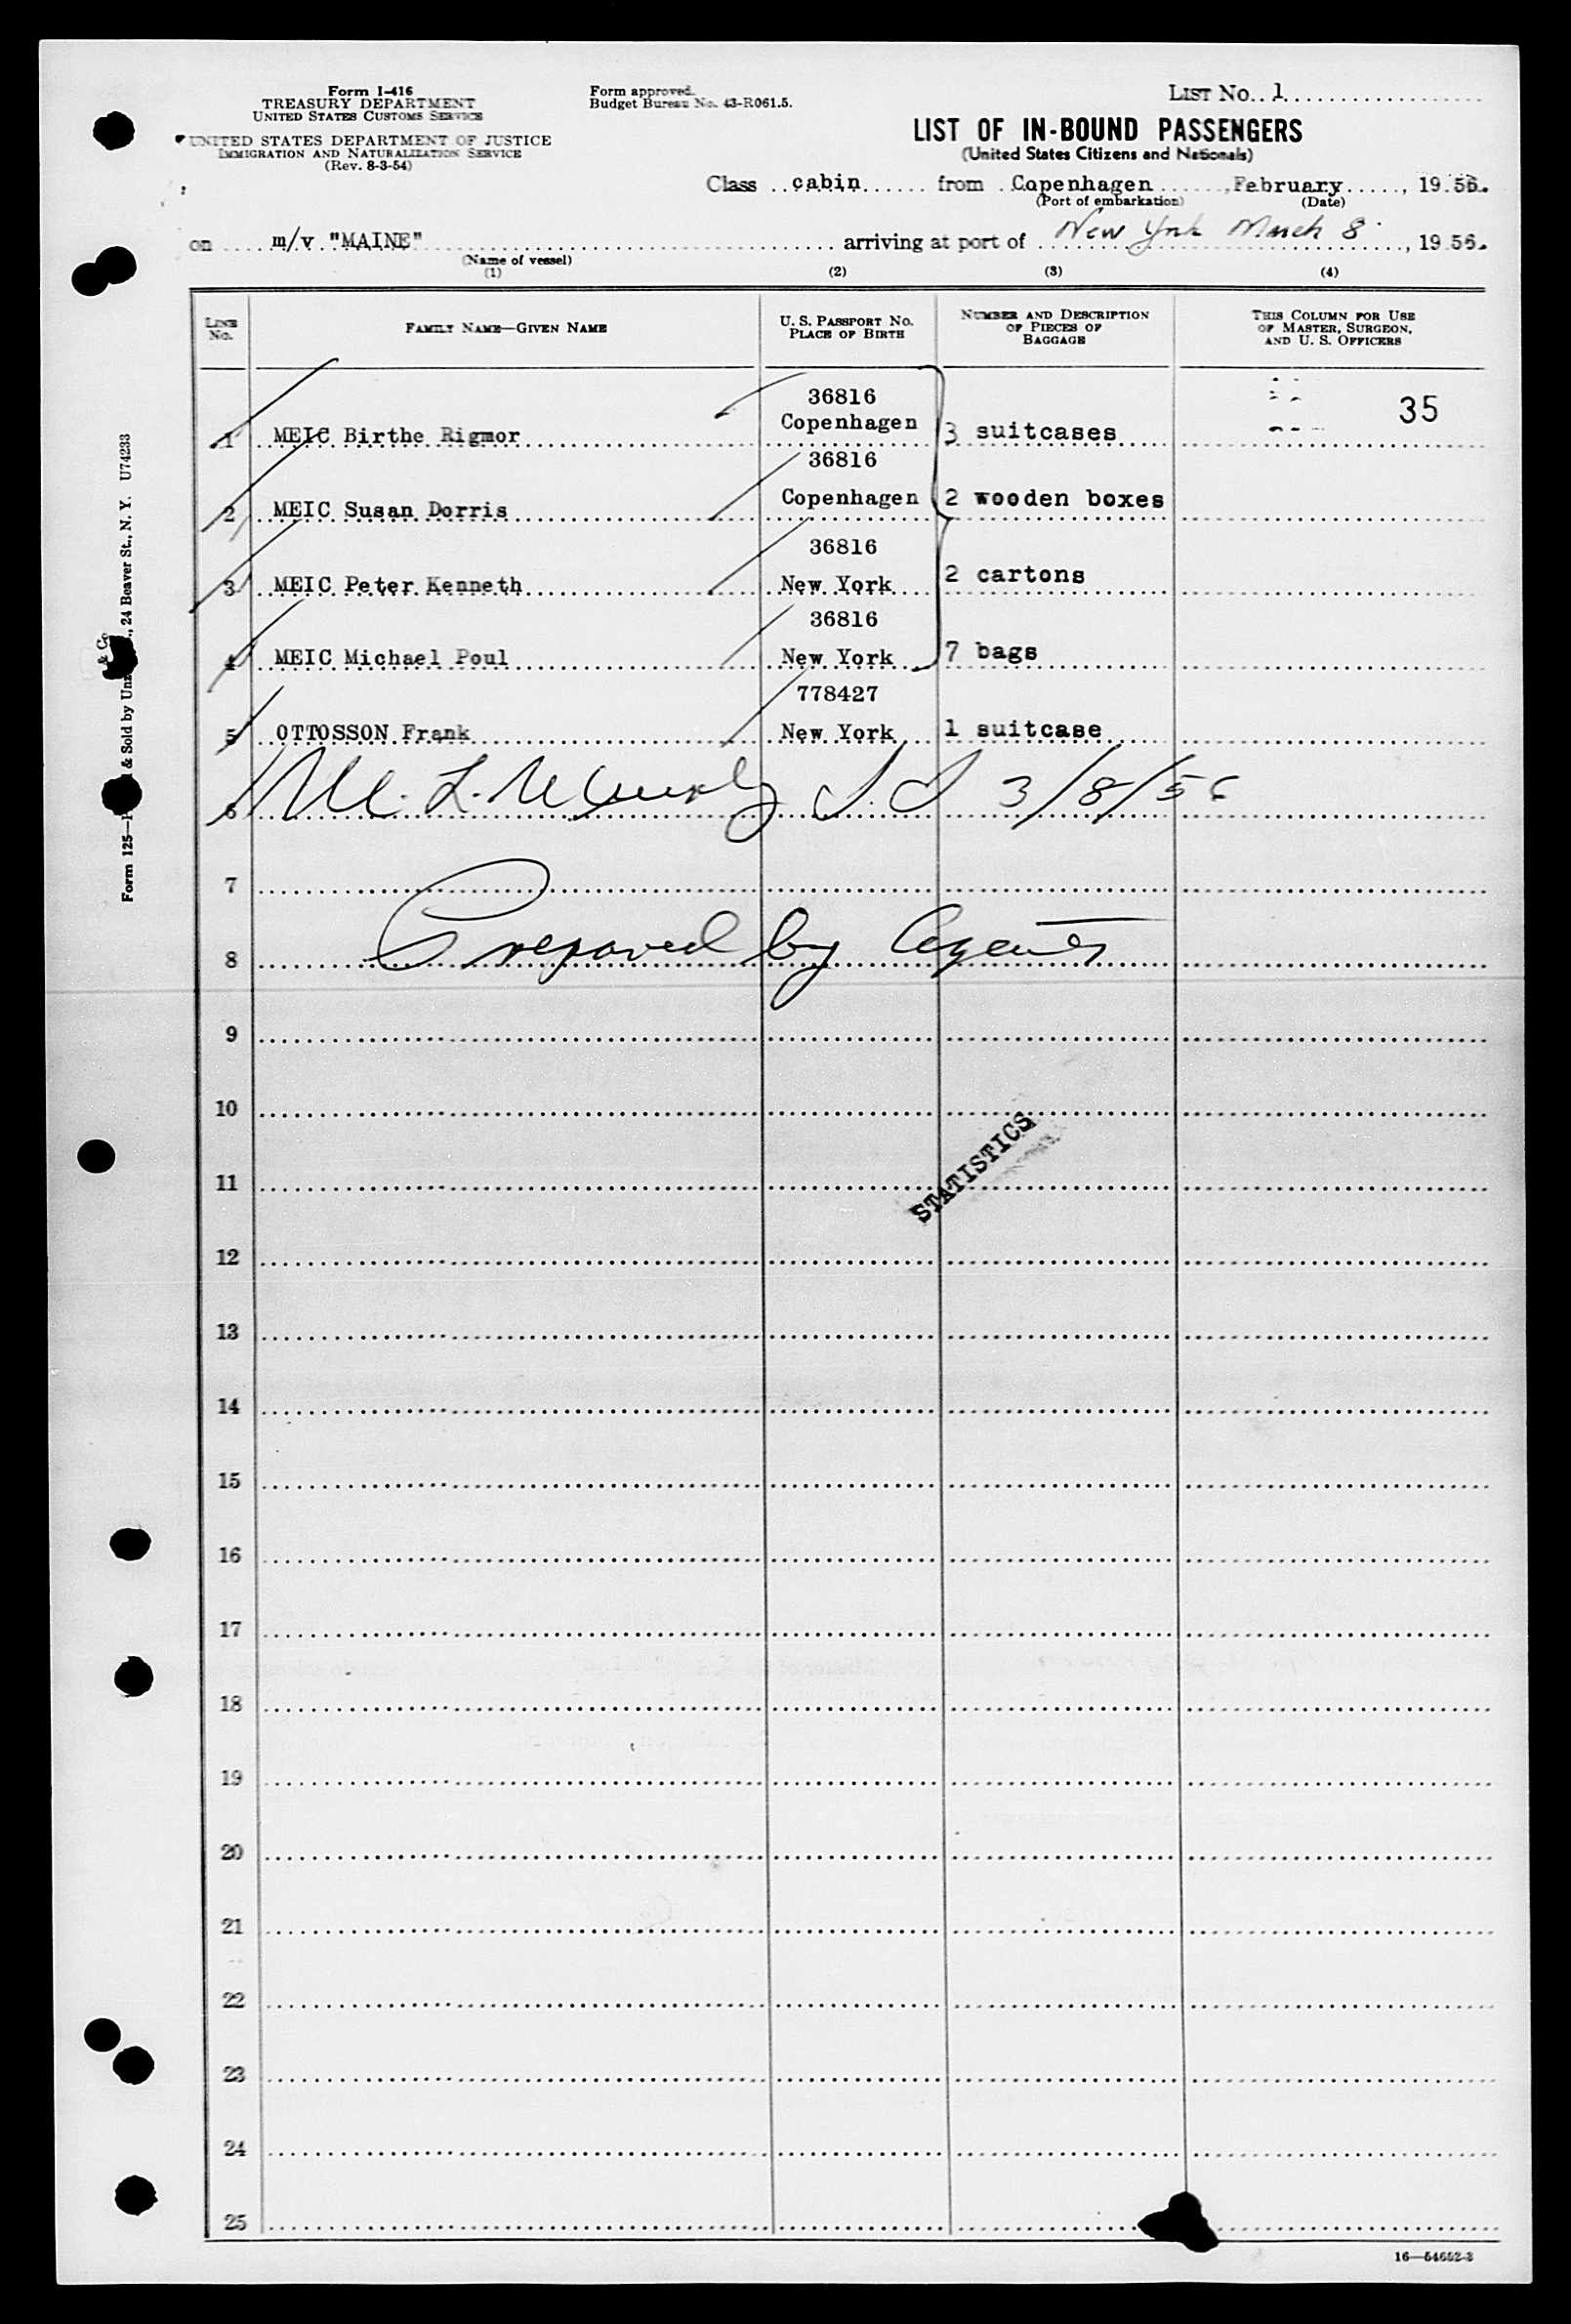 Form I-416
TREASURY DEPARTMENT
UNITED STATES CUSTOMS SERVICE
UNITED STATES DEPARTMENT OF JUSTICE
IMMIGRATION AND NATURALIZATION SERVICE
(Rev. 8-3-54)
Form approved.
Budget Bureau No. 43-R061.5.
LIST No. 1
LIST OF IN-BOUND PASSENGERS
(United States Citizens and Nationals)
Class cabin from Copenhagen, February, 1956.
(Port of embarkation) (Date)
on m/v "MAINE" arriving at port of New York March 8, 1956.
(Name of vessel)
(1) (2) (3) (4)
LINE No. FAMILY NAME—GIVEN NAME U. S. PASSPORT No. PLACE OF BIRTH NUMBER AND DESCRIPTION OF PIECES OF BAGGAGE THIS COLUMN FOR USE OF MASTER, SURGEON, AND U. S. OFFICERS
36816
35
1 MEIC Birthe Rigmor Copenhagen 3 suitcases
36816
2 MEIC Susan Dorris Copenhagen 2 wooden boxes
36816
3 MEIC Peter Kenneth New York 2 cartons
36816
4 MEIC Michael Poul New York 7 bags
778427
5 OTTOSSON Frank New York 1 suitcase
6 3/8/56
7
8 Prepared by Agents
9
10
11
STATISTICS
12
13
14
15
16
17
18
19
20
21
22
23
24
25
16—54652-3
Form 125— & Sold by Unz & Co., 24 Beaver St., N. Y. U74233